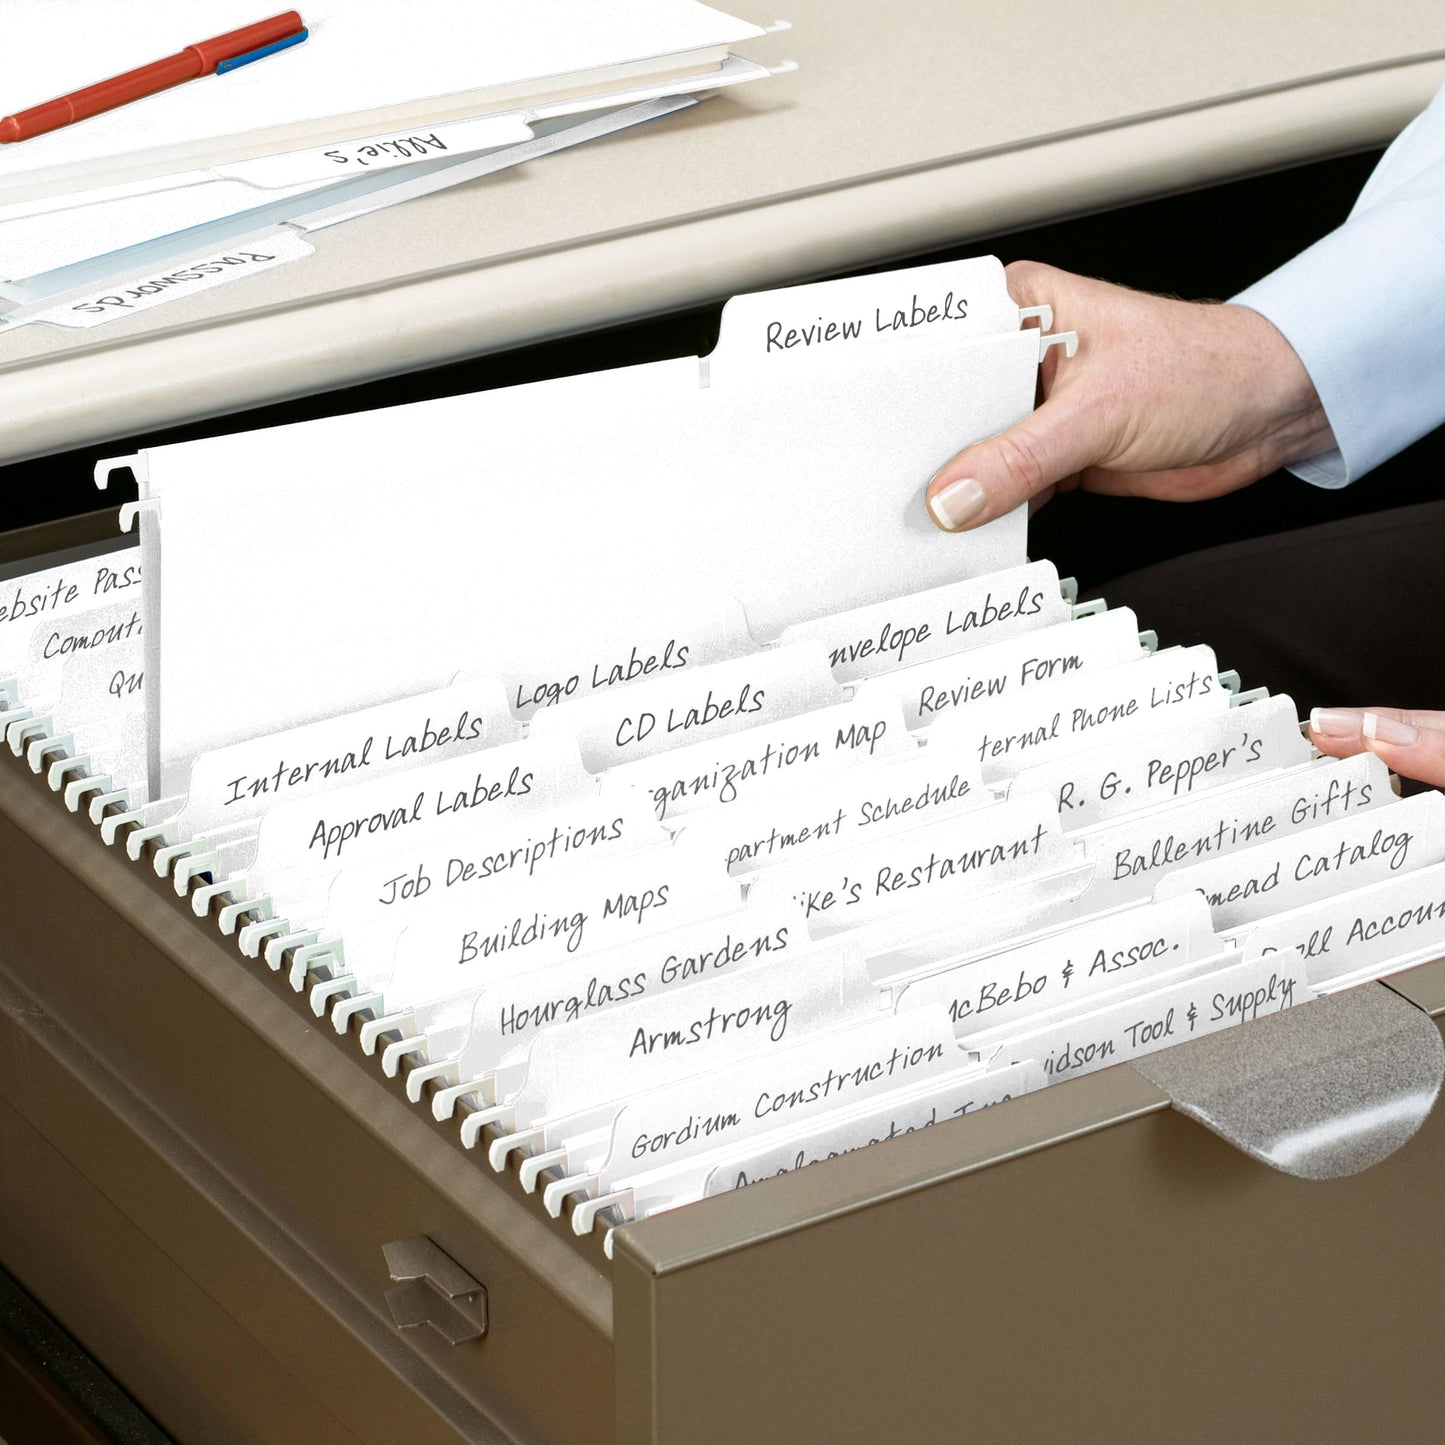 Allie's
Passwords
Review Labels
Website Pass
Qu
Logo Labels
nvelope Labels
Internal Labels
CD Labels
Review Form
Approval Labels
rganization Map
ternal Phone Lists
Job Descriptions
partment Schedule
R. G. Pepper's
Building Maps
ike's Restaurant
Ballentine Gifts
Hourglass Gardens
McBebo & Assoc.
mead Catalog
Armstrong
vidson Tool & Supply
ll Accoun
Gordium Construction
Amalgamated